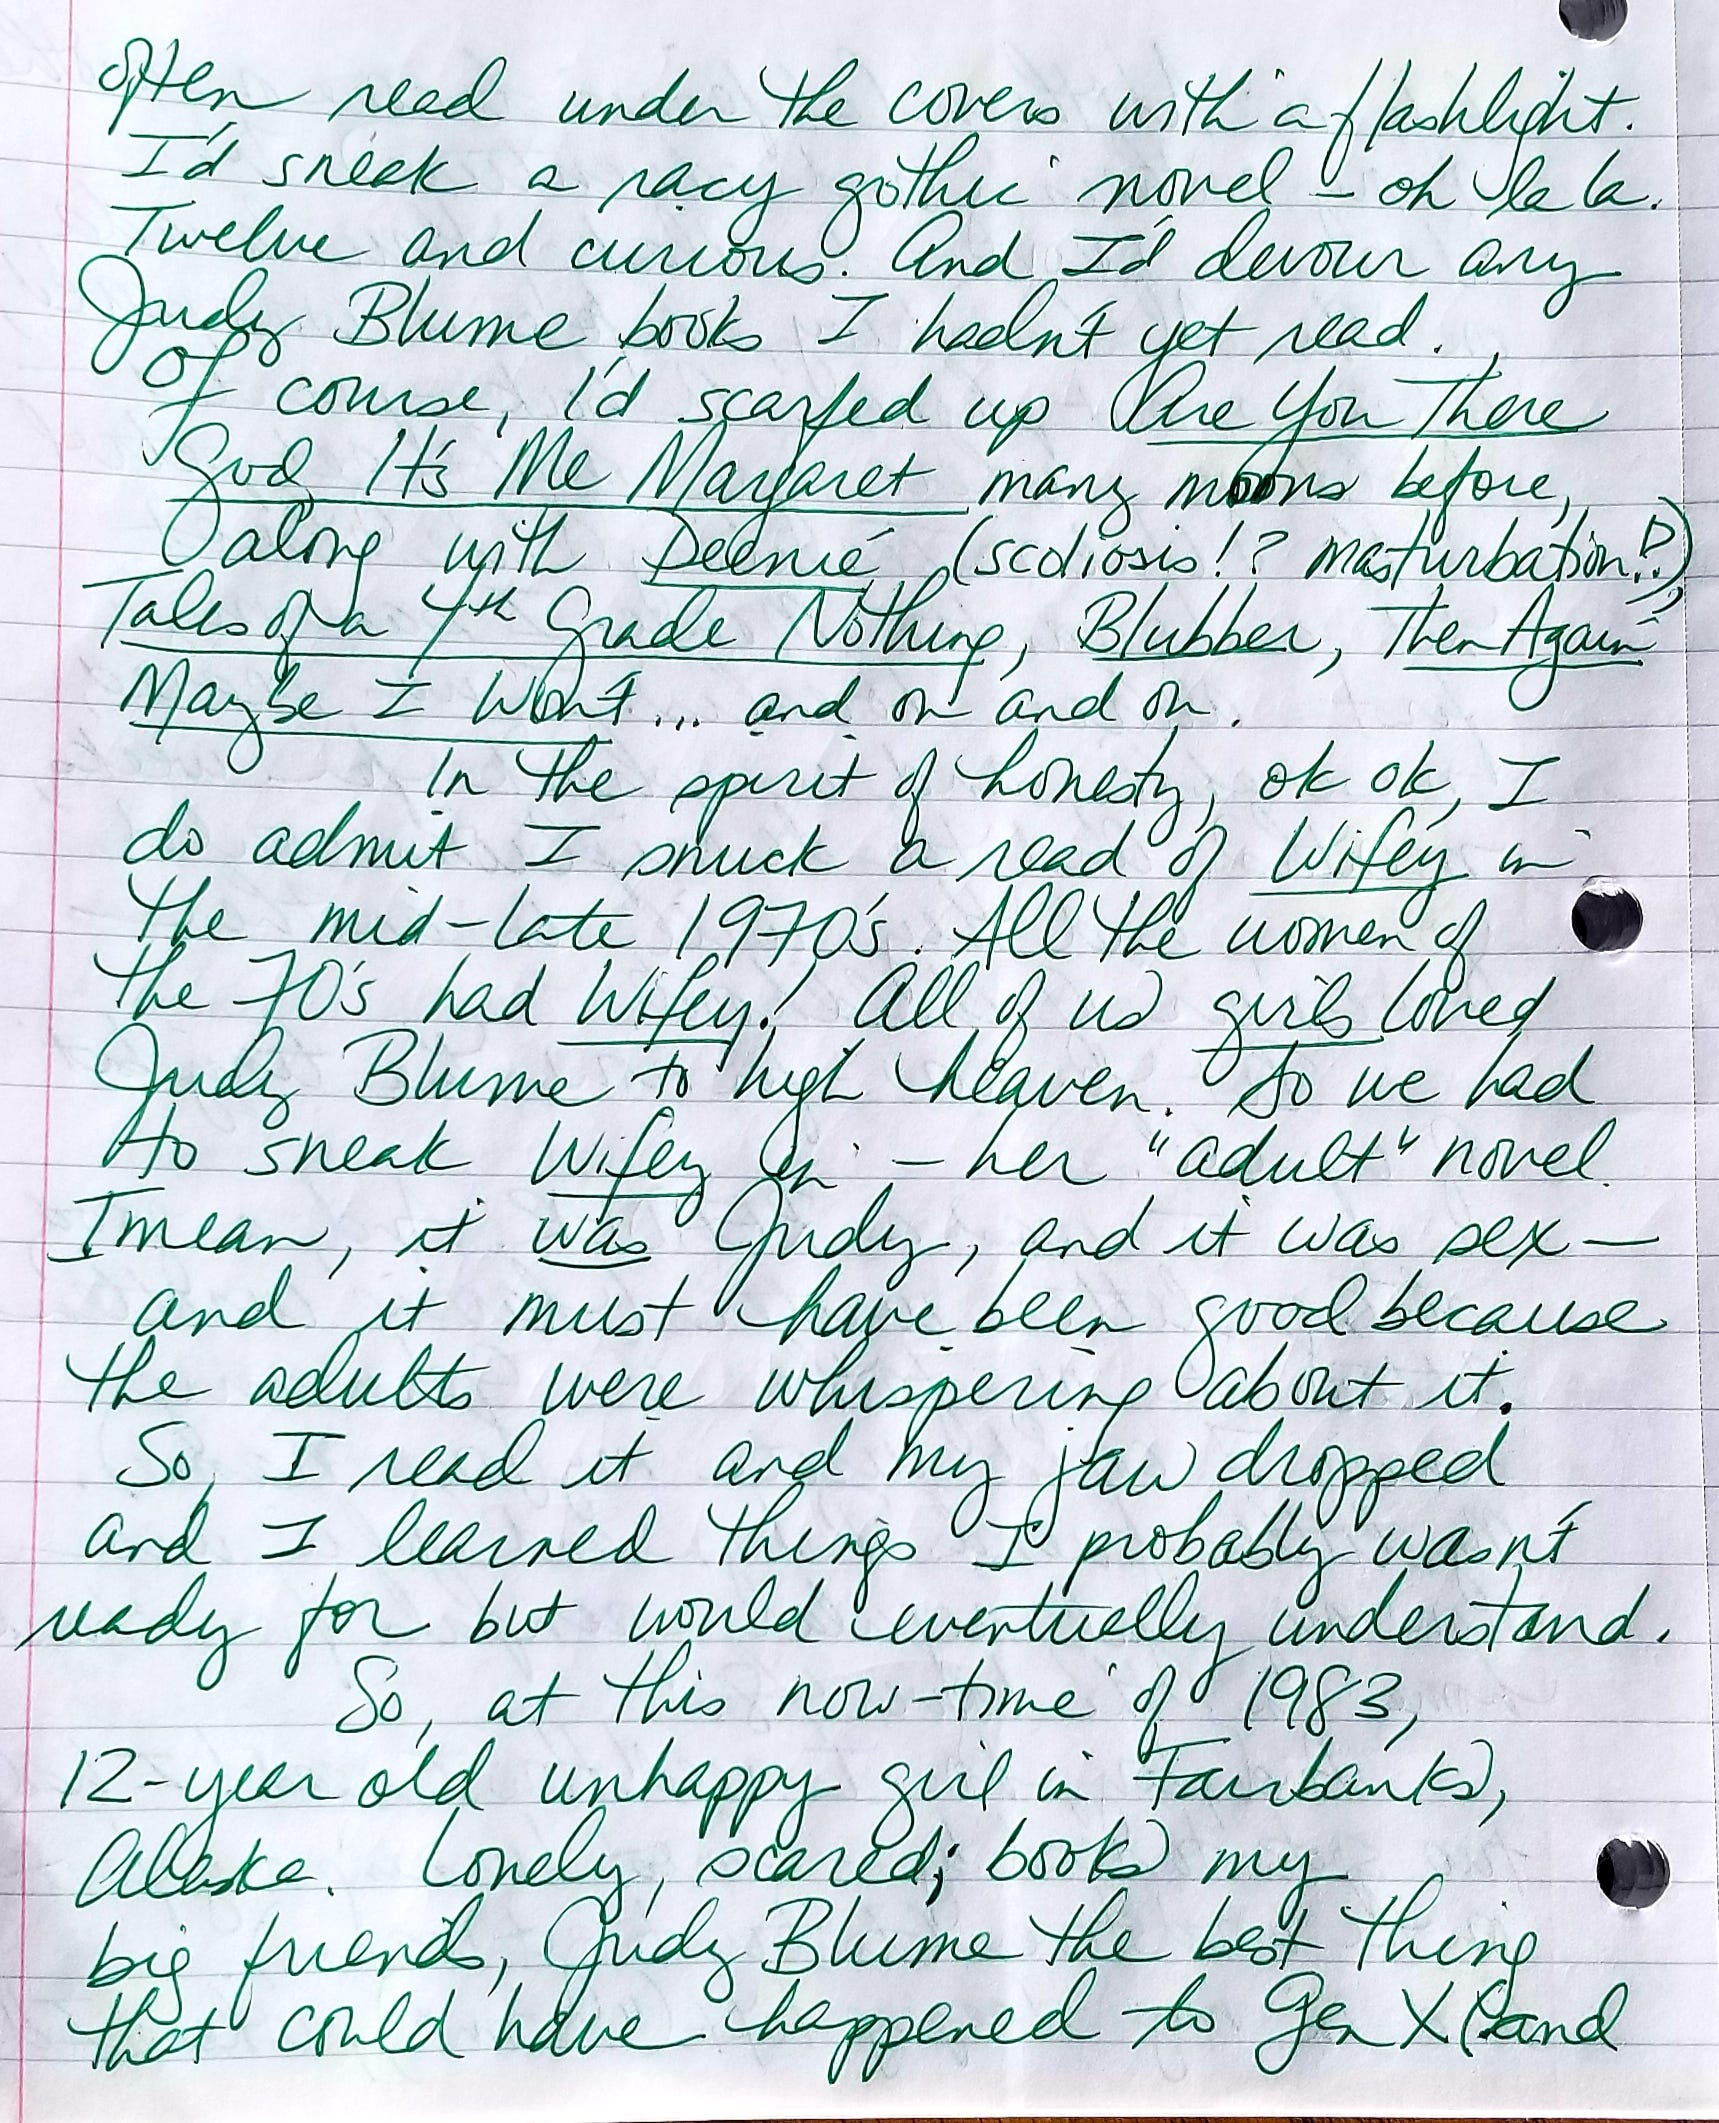 often read under the covers with a flashlight.
I'd sneak a racy gothic novel – oh la la.
Twelve and curious. And I'd devour any
Judy Blume books I hadn't yet read.
Of course, I'd scarfed up Are You There
God It's Me Margaret many moons before,
along with Deenie (scoliosis!? masturbation!?),
Tales of a 4th Grade Nothing, Blubber, Then Again
Maybe I Won't... and on and on.
In the spirit of honesty, ok ok, I
do admit I snuck a read of Wifey in
the mid-late 1970's. All the women of
the 70's had Wifey! All of us girls loved
Judy Blume to high heaven. So we had
to sneak Wifey in – her "adult" novel.
I mean, it was Judy, and it was sex—
and it must have been good because
the adults were whispering about it.
So, I read it and my jaw dropped
and I learned things I probably wasn't
ready for but would eventually understand.
So, at this now-time of 1983,
12-year old unhappy girl in Fairbanks,
Alaska. Lonely, scared; books my
big friends, Judy Blume the best thing
that could have happened to Gen X (and